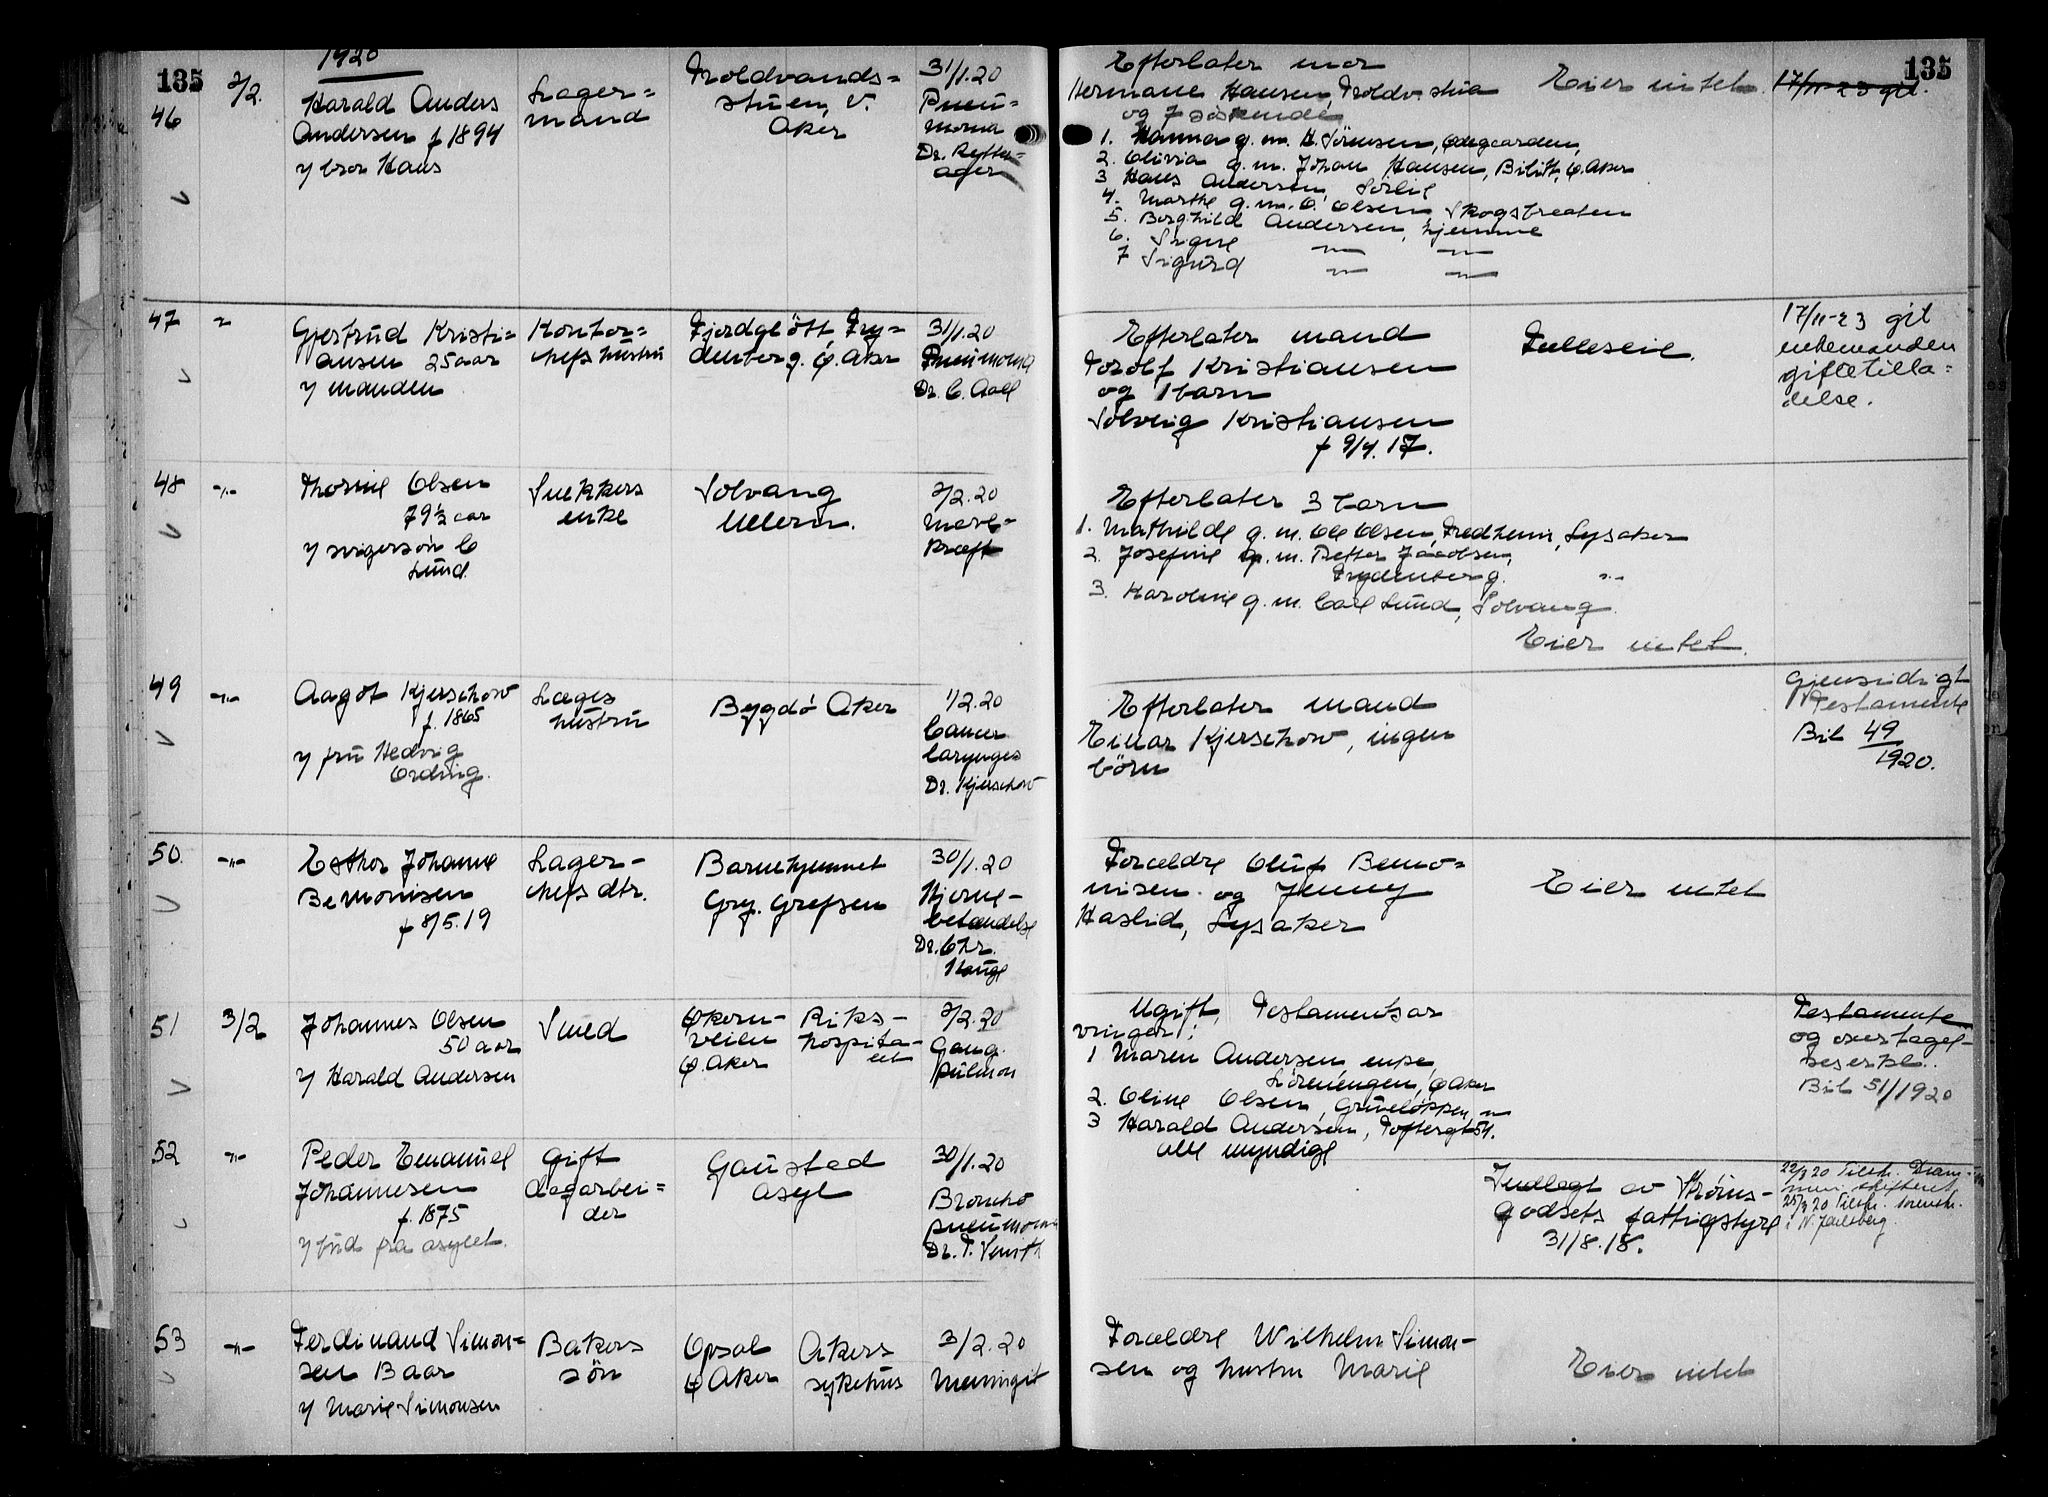 1920
135
46
2/2.
Harald Anders
Andersen f 1894
y bror Hans
Lager=
mand
Troldvands=
stuen, V.
Aker
31/1.20
Pneu=
monia
Dr. Rytter-
ager
Efterlater mor
Hermane Hansen, Troldv. stua
og 7 söskende
1. Hanna g. m. H. Sörensen, Ödegaarden,
2. Olivia g. m. Johan Hansen, Bilitt, Ø. Aker
3 Hans Andersen, Sörlie
4. Marthe g. m. O. Olsen, Skogsbraaten
5. Borghild Andersen, hjemme
6. Signe -"- -"-
7 Sigurd -"- -"-
Eier intet
17/11-23 git.
135
47
"
Gjertrud Kristi=
ansen 25 aar
y manden
Kontor=
chefs hustru
Fjordglött Fry=
denberg. Ø. Aker
31/1.20
Pneumonia
Dr. C. Aall
Efterlater mand
Torolf Kristiansen
og 1 barn
Solveig Kristiansen
f 9/4.17.
Fælleseie.
17/11-23 git
enkemanden
giftetilla=
delse.
48
-"-
Thorine Olsen
79 1/2 aar
y svigersön C
Lund.
Snekkers
enke
Solvang
Ullern.
2/2.20
Marv-
kræft
Efterlater 3 barn
1. Mathilde g. m. Ole Olsen, Fredheim, Lysaker
2. Josefine g. m. Petter Jacobsen,
Frydenberg. -"-
3. Karoline g. m. Carl Lund, Solvang.
Eier intet.
49
-"-
Aagot Kjerschow
f. 1865
y fru Hedvig
Ording.
Læges
hustru
Bygdö Aker
1/2.20
Cancer
laryngis
Dr. Kjerschow
Efterlater mand
Einar Kjerschow, ingen
börn
Gjensidigt
Testamente
Bil 49
1920.
50.
-"-
Esther Johanne
Bemonisen
f 8/5.19
Lager-
chefs dtr.
Barnehjemmet
Gry. Grefsen
30/1.20
Hjerne-
betændelse
Dr. Chr.
Hauge
Foreldre Oluf Bemo=
nisen og Jenny
Haslid, Lysaker
Eier intet
51
3/2
Johannes Olsen
50 aar
y Harald Andersen
Smed
Økern-
veien
Ø. Aker
Riks-
hospita-
let
2/2.20
Gang.
pulmon
Ugift, Testamentsar
vinger:
1 Maren Andersen, enke,
Lörenengen, Ø Aker
2. Oline Olsen, Grüneløkken, "
3 Harald Andersen, Toftergt 54.
alle myndige
Testamente
og overtagel-
seserkl.
Bil 51/1920
52
-"-
Peder Emanuel
Johannesen
f. 1875
y bud fra asylet.
Gift
dagarbei=
der
Gaustad
asyl
30/1.20
Broncho
pneumonia
Dr. T. Smith
Indlagt av Strøms-
godsets fattigstyre
31/8.18.
22/3 20 Tilstr. Dram-
men skifteret
25/3 20 Tilstr. sorenskr.
i N. Jarlsberg.
53
-"-
Ferdinand Simon=
sen 13 aar
y Marie Simonsen
Bakers
sön
Opsal
Ø Aker
Akers
sykehus
3/2.20
Meningit
Foreldre Wilhelm Simon-
sen og hustru Marie
Eier intet